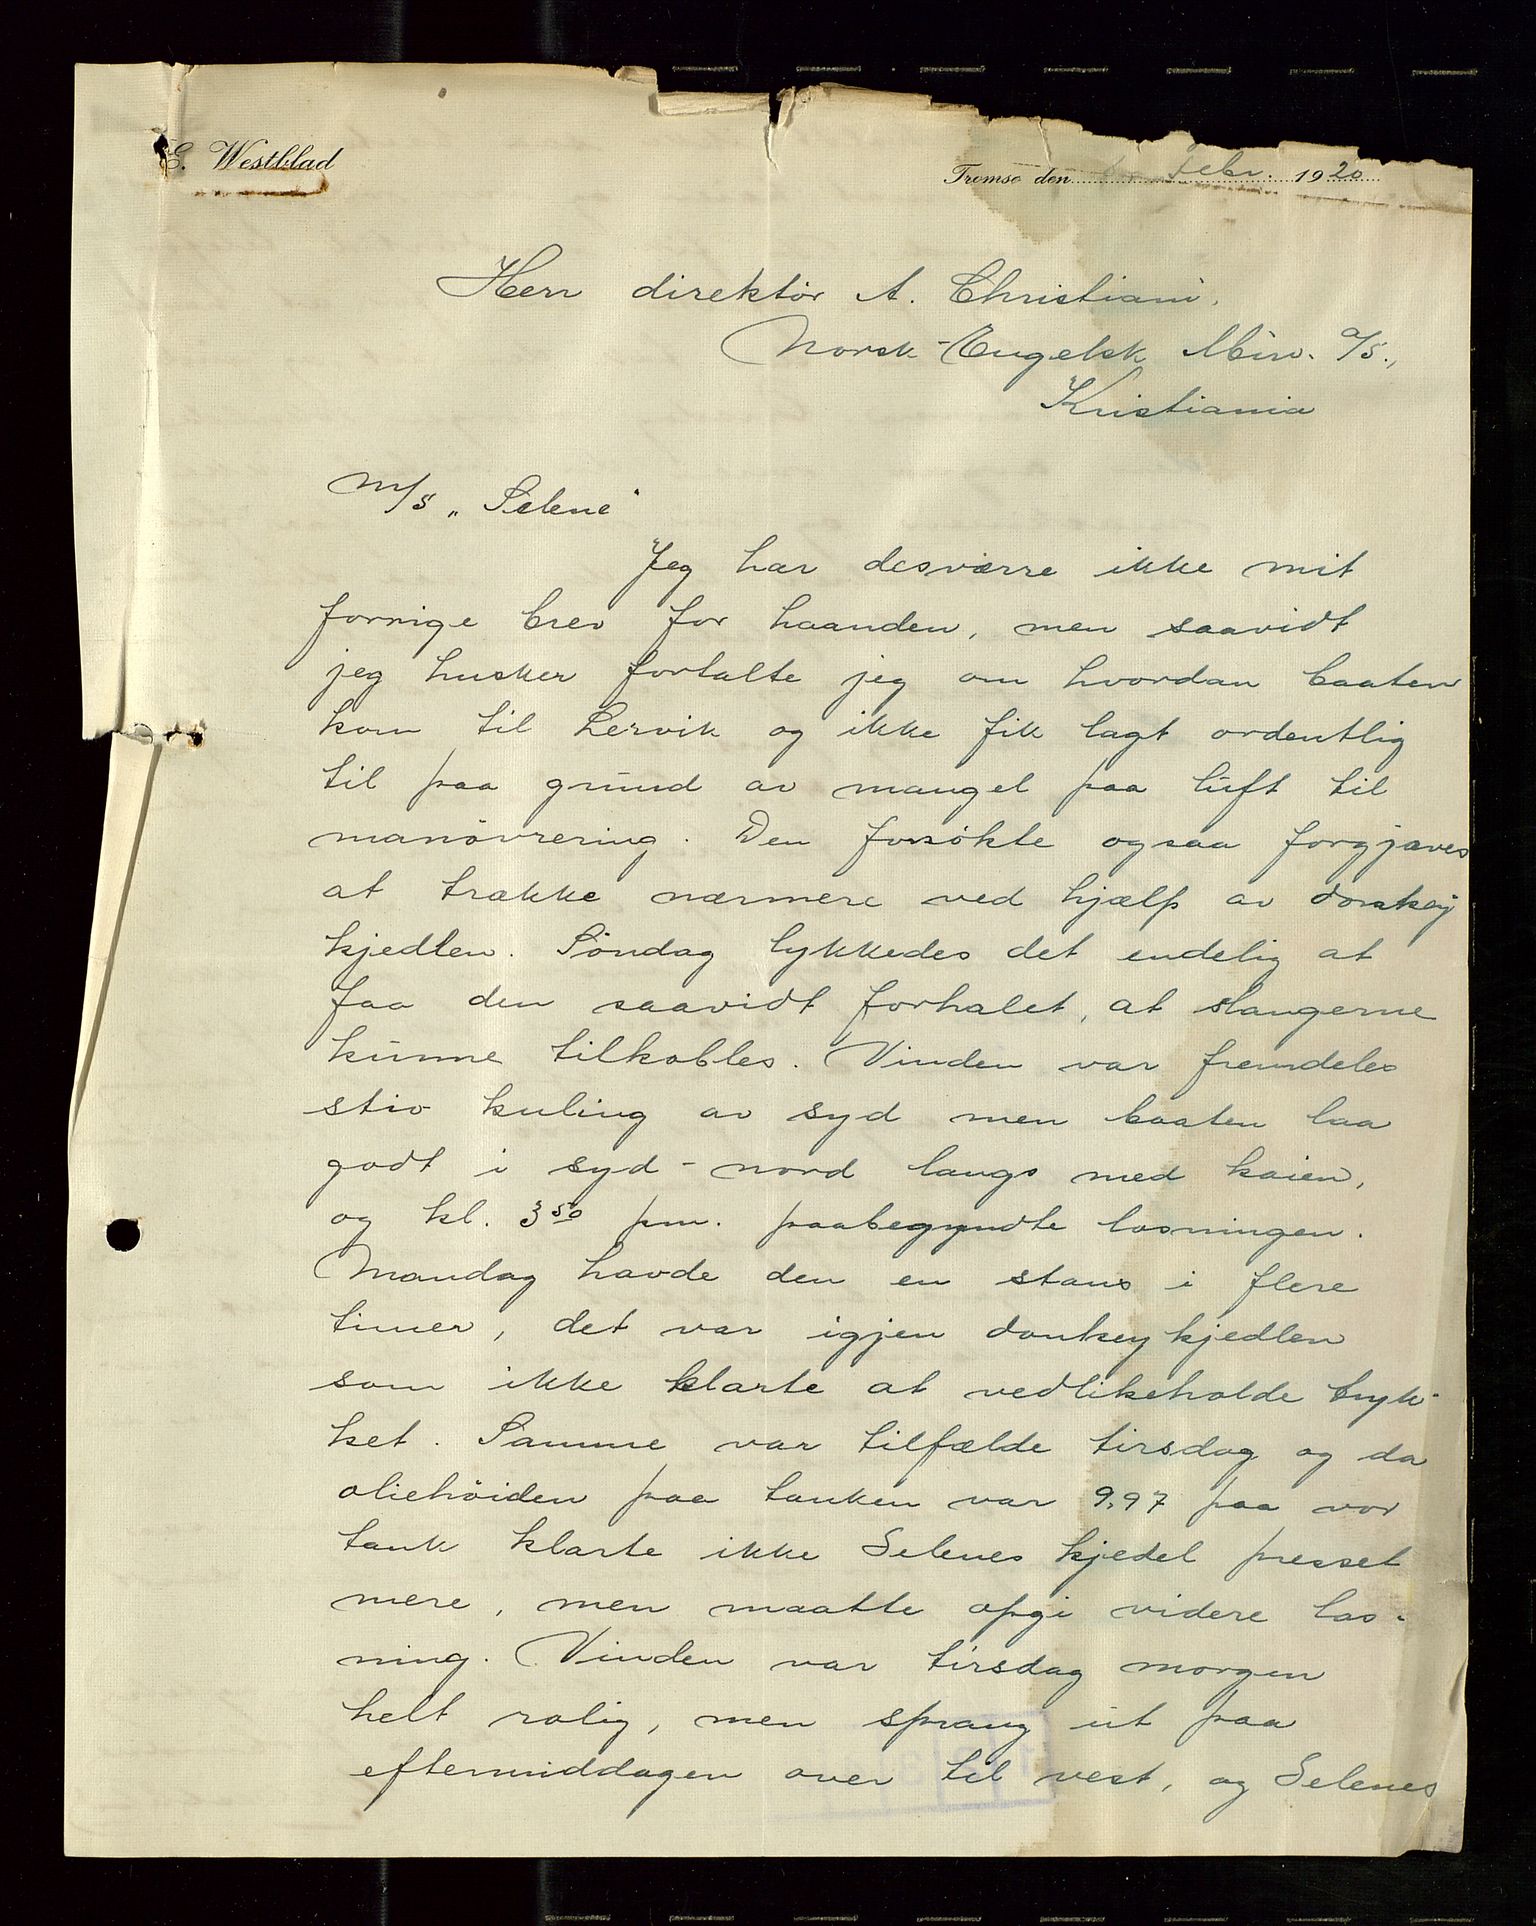 E. Westblad
Tromsø den Febr. 1920
Herr direktör A. Christiani.
Norsk-Engelsk Min. A/S.,
Kristiania
M/S „Selene"
Jeg har desværre ikke mit
forrige brev for haanden, men saavidt
jeg husker fortalte jeg om hvordan baaten
kom til Lervik og ikke fik lagt ordentlig
til paa grund av mangel paa luft til
manövrering. Den forsökte ogsaa forgjæves
at trække nærmere ved hjælp av donkey
kjedlen. Söndag lykkedes det endelig at
faa den saavidt forhalet, at slangerne
kunne tilkobles. Vinden var fremdeles
stiv kuling av syd men baaten laa
godt i syd-nord langs med kaien,
og kl. 3 50 pm. paabegyndte losningen.
Mandag havde den en stans i flere
timer, det var igjen donkeykjedlen
som ikke klarte at vedlikeholde tryk-
ket. Samme var tilfælde tirsdag og da
oliehöiden paa tanken var 9,97 paa vor
tank klarte ikke Selenes kjedel presset
mere, men maatte opgi videre los-
ning. Vinden var tirsdag morgen
helt rolig, men sprang ut paa
eftermiddagen over til vest, og Selenes